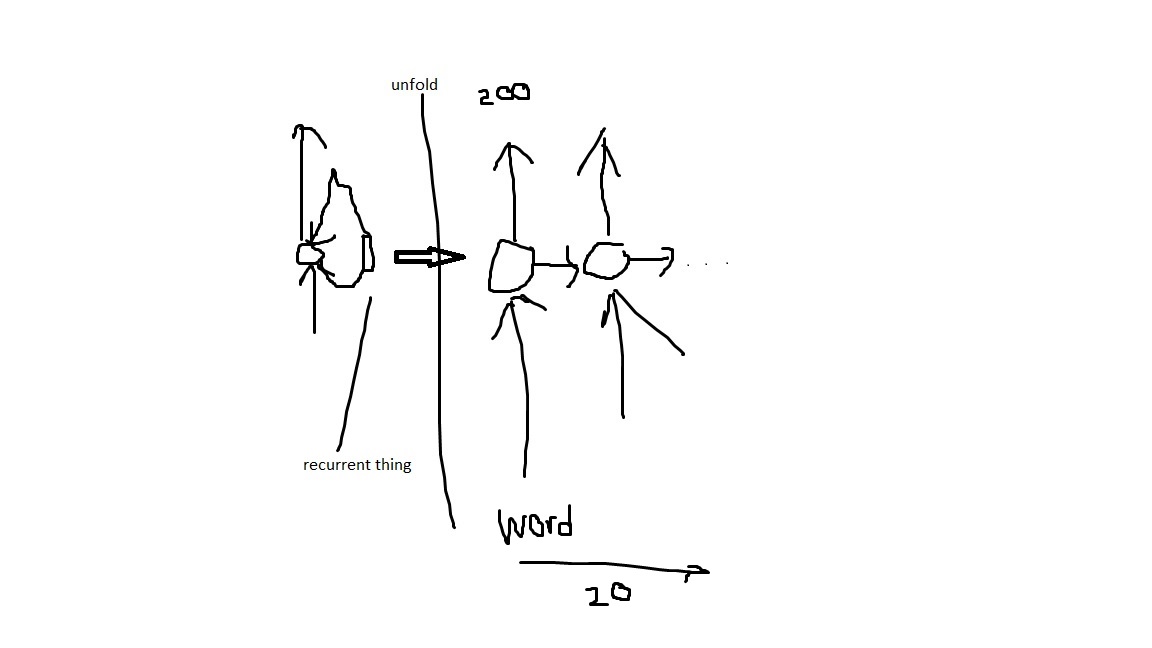 unfold
200
. . .
recurrent thing
Word
20